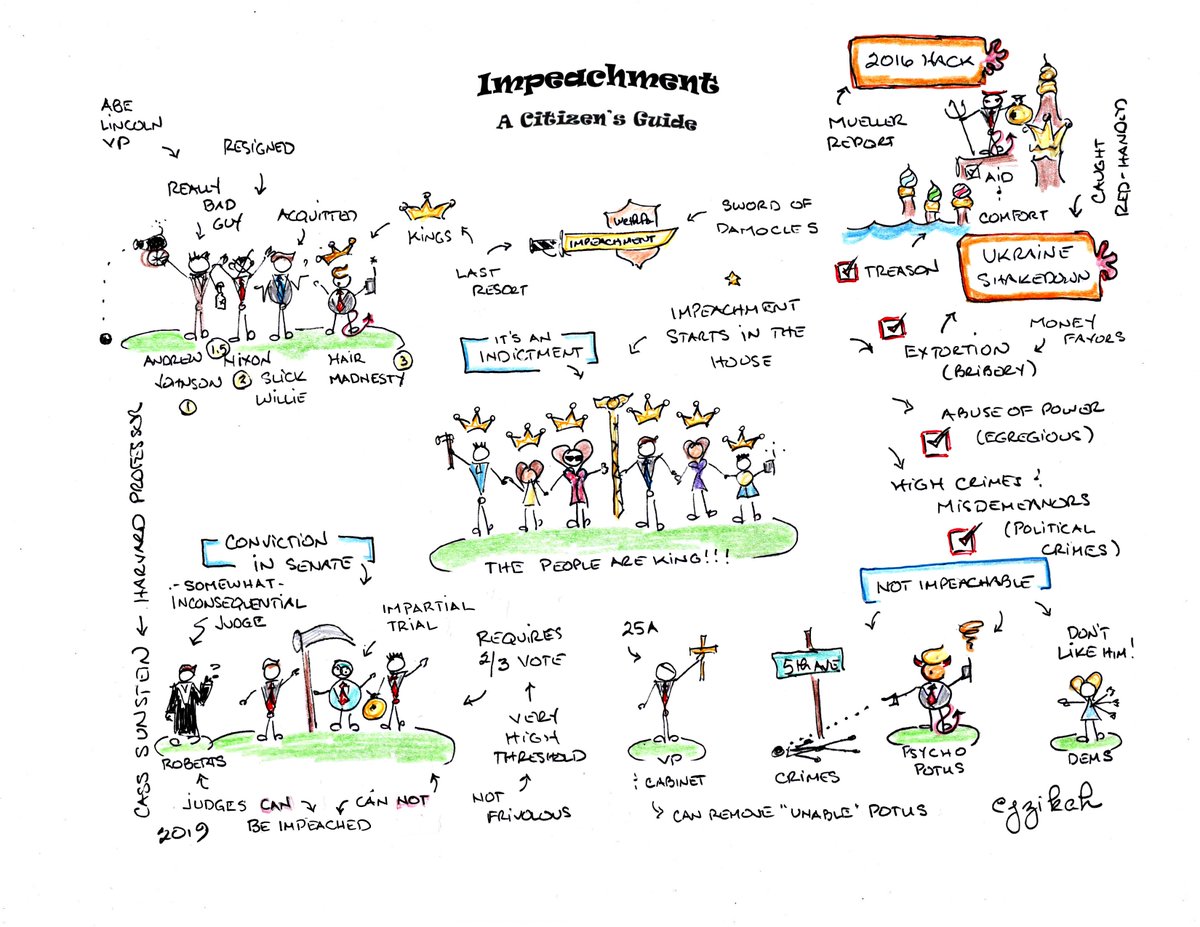 Impeachment
A Citizen's Guide
ABE
LINCOLN
VP
RESIGNED
REALLY
BAD
GUY
ACQUITTED
KINGS
ANDREW
JOHNSON
1
1.5
NIXON
2
SLICK
WILLIE
HAIR
MADNESTY
3
LAST
RESORT
IMPEACHMENT
SWORD OF
DAMOCLES
IMPEACHMENT
STARTS IN THE
HOUSE
IT'S AN
INDICTMENT
THE PEOPLE ARE KING!!!
2016 HACK
MUELLER
REPORT
AID
&
COMFORT
CAUGHT
RED-HANDED
TREASON
UKRAINE
SHAKEDOWN
EXTORTION
(BRIBERY)
MONEY
FAVORS
ABUSE OF POWER
(EGREGIOUS)
HIGH CRIMES &
MISDEMEANORS
(POLITICAL
CRIMES)
NOT IMPEACHABLE
CASS SUNSTEIN ← HARVARD PROFESSOR
CONVICTION
IN SENATE
-SOMEWHAT-
INCONSEQUENTIAL
JUDGE
IMPARTIAL
TRIAL
ROBERTS
JUDGES CAN
CAN NOT
BE IMPEACHED
2019
REQUIRES
2/3 VOTE
VERY
HIGH
THRESHOLD
NOT
FRIVOLOUS
25A
VP
& CABINET
CAN REMOVE "UNABLE" POTUS
5TH AVE
CRIMES
PSYCHO
POTUS
DON'T
LIKE HIM!
DEMS
ejzikah